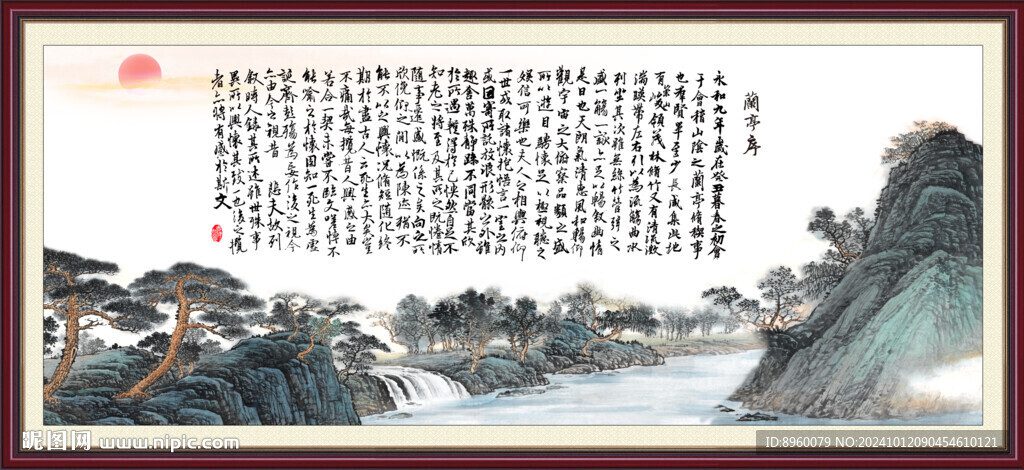 蘭亭序
永和九年歲在癸丑暮春之初會
于會稽山陰之蘭亭脩禊事
也羣賢畢至少長咸集此地
有崇山峻領茂林脩竹又有清流激
湍暎帶左右引以為流觴曲水
列坐其次雖無絲竹管弦之
盛一觴一詠亦足以暢敘幽情
是日也天朗氣清惠風和暢仰
觀宇宙之大俯察品類之盛
所以遊目騁懷足以極視聽之
娛信可樂也夫人之相與俯仰
一世或取諸懷抱悟言一室之內
或因寄所託放浪形骸之外雖
趣舍萬殊靜躁不同當其欣
於所遇暫得於己快然自足不
知老之將至及其所之既惓情
隨事遷感慨係之矣向之所
欣俛仰之間以為陳迹猶不
能不以之興懷況脩短隨化終
期於盡古人云死生亦大矣豈
不痛哉每攬昔人興感之由
若合一契未嘗不臨文嗟悼不
能喻之於懷固知一死生為虛
誕齊彭殤為妄作後之視今
亦由今之視昔 悲夫故列
敘時人錄其所述雖世殊事
異所以興懷其致一也後之攬
者亦將有感於斯文
昵图网 www.nipic.com
ID:8960079 NO:20241012090454610121